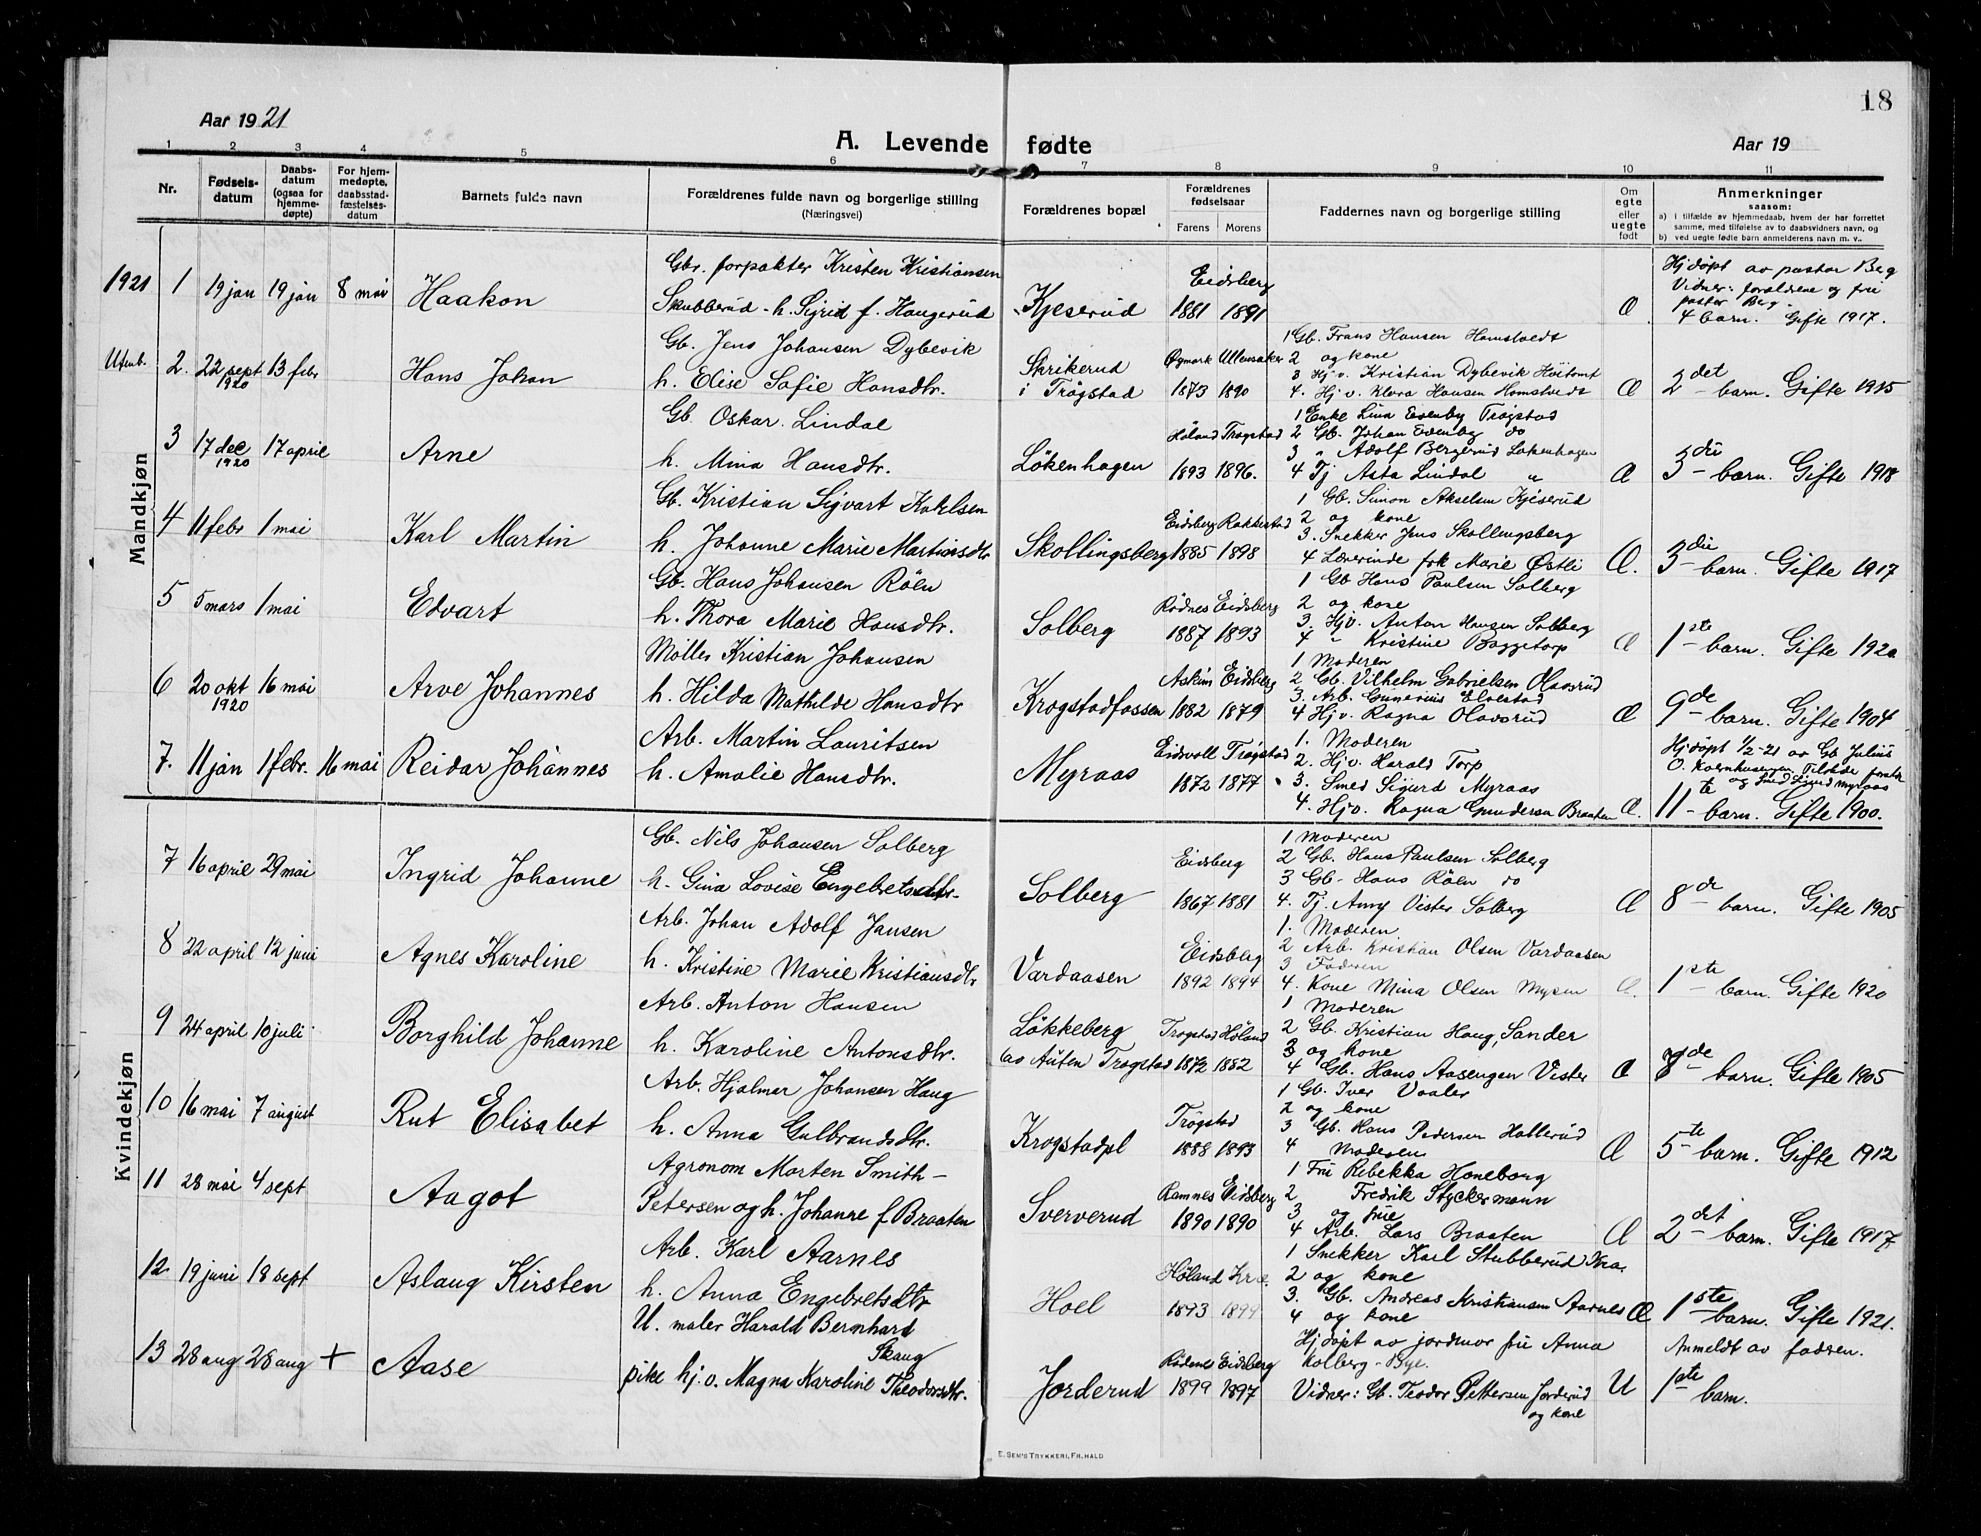 18
Aar 1921
A. Levende fødte
Aar 19
1 2 3 4 5 6 7 8 9 10 11
Nr.
Fødsels-
datum
Daabs-
datum
(ogsaa for
hjemme-
døpte)
For hjem-
medøpte,
daabsstad-
fæstelses-
datum
Barnets fulde navn
Forældrenes fulde navn og borgerlige stilling
(Næringsvei)
Forældrenes bopæl
Forældrenes
fødselsaar
Farens Morens
Faddernes navn og borgerlige stilling
Om
egte
eller
uegte
født
Anmerkninger
saasom:
a) i tilfælde av hjemmedaab, hvem der har forrettet
samme, med tilføielse av to daabsvidners navn, og
b) ved uegte fødte barn anmelderens navn m. v..
Mandkjøn
1921 1 19 jan 19 jan 8 mai Haakon
Gbr. forpakter Kristen Kristiansen
Skubberud - h. Sigrid f. Haugerud
Kjeserud
Eidsberg
1881 1891
Œ
Hjdøpt av pastor Berg
Vidner: forældrene og fru
pastor Berg.
4 barn. Gifte 1917.
Utenb. 2. 22 sept 13 febr
1920
Hans Johan
Gb. Jens Johansen Dybevik
h. Elise Sofie Hansdtr.
Skrikerud
i Trøgstad
Øymark Ullensaker
1873 1890
1 Gb. Frans Hansen Hamstvedt
2 og kone
3 Hj. v. Kristian Dybevik Høitomt
4. Hj. v. Klara Hansen Hamstvedt
Œ
2det barn. Gifte 1915
3 17 dec 17 april
1920
Arne
Gb. Oskar Lindal
h. Mina Hansdtr.
Løkenhagen
Høland Trøgstad
1893 1896.
1 Enke Lina Evenby Trøgstad
2 Gb. Johan Evenby do
3 " Adolf Bergerud Løkenhagen
4 Tj Asta Lindal "
Œ
3die barn. Gifte 1918
4 11 febr 1 mai
Karl Martin
Gb. Kristian Sigvart Karlsen
h. Johanne Marie Martinsdtr
Skollingsberg
Eidsberg Rakkestad
1885 1898
1 Gb. Simon Akselsen Kjeserud
2 og kone
3. Snekker Jens Skollingsberg
4 Lærerinde frk Marie Østli
Œ.
3die barn. Gifte 1917
5 5 mars 1 mai
Edvart
Gb. Hans Johansen Røen
h. Thora Marie Hansdtr.
Solberg
Rødnes Eidsberg
1887 1893
1 Gb Hans Paulsen Solberg
2 og kone
3. Hjv. Anton Hansen Solberg
4 " Kristine Baggetorp
Œ
1ste barn. Gifte 1920
6 20 okt 16 mai
1920
Arve Johannes
Møller Kristian Johansen
h. Hilda Mathilde Hansdtr
Krogstadfossen
Askim Eidsberg
1882 1879
1 Moderen
2 Gb. Vilhelm Gabrielsen Olavsrud
3. Arb. Gunerius Elvestad
4 Hjv. Ragna Olavsrud
Œ
9de barn. Gifte 1904
7. 11 jan 1 febr. 16 mai
Reidar Johannes
Arb. Martin Lauritsen
h. Amalie Hansdtr.
Myraas
Eidsvoll Trøgstad
1872 1877
1. Moderen
2. Hjv. Harald Torp
3. Smed Sigurd Myraas
4. Hjv. Ragna Gundersen Braaten
Œ.
Hjdøpt 1/2-21 av Gb Julius
O. Kornhusengen Tilstede
og Smed Sigurd Myraas
11te barn. Gifte 1900.
Kvindekjøn
7 16 april 29 mai
Ingrid Johanne
Gb. Nils Johansen Solberg
h. Gina Lovise Engebretsdtr.
Solberg
Eidsberg
1867 1881
1 Moderen
2 Gb. Hans Paulsen Solberg
3 Gb. Hans Røen do
4. Tj. Amy Vister Solberg
Œ
8de barn. Gifte 1905
8 22 april 12 juni
Agnes Karoline
Arb. Johan Adolf Jansen
h. Kristine Marie Kristiansdtr
Vardaasen
Eidsberg
1892 1894
1. Moderen
2 Arb. Kristian Olsen Vardaasen
3 Faderen
4. Kone Mina Olsen Mysen
Œ.
1ste barn. Gifte 1920
9 24 april 10 juli
Borghild Johanne
Arb. Anton Hansen
h. Karoline Antonsdtr.
Løkkeberg
av Auten Trøgstad
Trøgstad Høland
1872 1882
1 Moderen
2 Gb. Kristian Haug, Sander
3 og kone
4 Gb. Hans Aasengen Vister
Œ
8de barn. Gifte 1905
10 16 mai 7 august
Rut Elisabet
Arb. Hjalmar Johansen Haug
h. Anna Gulbrandsdtr.
Krogstadpl
Trøgstad
1888 1893
1 Gb. Iver Vaaler
2 og kone
3 Gb. Hans Pedersen Hallerud
4 Moderen
Œ
5te barn. Gifte 1912
11 28 mai 4 sept
Aagot
Agronom Morten Smith-
Petersen og h. Johanne f Braaten
Sververud
Ramnes Eidsberg
1890 1890
1 Fru Rebekka Honeborg
2 Fredrik Styckermann
3 og frue
4 Arb. Lars Braaten
Œ
2det barn. Gifte 1917
12. 19 juni 18 sept
Aslaug Kirsten
Arb. Karl Aarnes
h. Anna Engebretsdtr
Hoel
Høland Kra.
1893 1899
1 Snekker Karl Stubberud Kra.
2 og kone
3. Gb. Andreas Kristiansen Aarnes
4 og kone
Œ
1ste barn. Gifte 1921.
13 28 aug 28 aug +
Aase
U. maler Harald Bernhard
Skaug
pike hj. v. Magna Karoline Theodorsdtr.
Jorderud
Rødenes Eidsberg
1899 1897
Hjdøpt av jordmor fru Anna
Kolberg-Bye.
Vidner: Gb. Teodor Pettersen Jorderud
og kone
U
Anmeldt av faderen.
1ste barn.
E. SEM'S TRYKKERI, FR.HALD